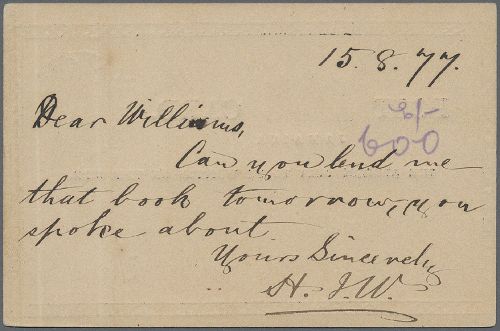 15.8.77.
Dear Williams,
£/-
600
Can you lend me
that book tomorrow, you
spoke about
Yours Sincerely
H. J. W.